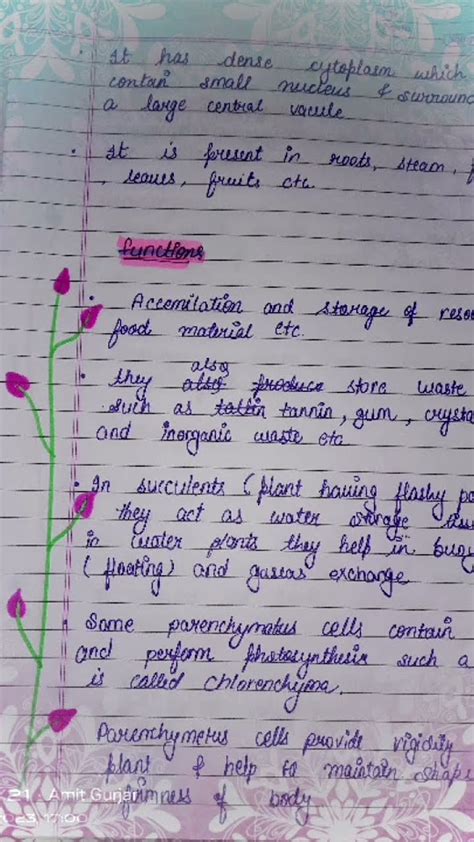 It has dense cytoplasm which
contain small nucleus & surround
a large central vacule
It is present in roots, steam,
, leaves, fruits etc.
functions
Accemilation and storage of
food material etc.
also
they also produce store waste
such as tannin, gum,
and inorganic waste etc
In succulents (plant having flashy
they act as water storage
in water plants they help in
(floating) and gaseas exchange
Some parenchymatus cells contain
and perform photosynthesis such a
is called chlorenchyma.
Parenchymetus cells provide rigidity
plant & help to maintain shape
firmness of body
21 Amit Gurjar
023 17:00